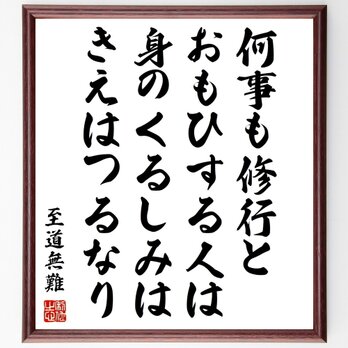 何事も修行と
おもひする人は
身のくるしみは
きえはつるなり
至道無難